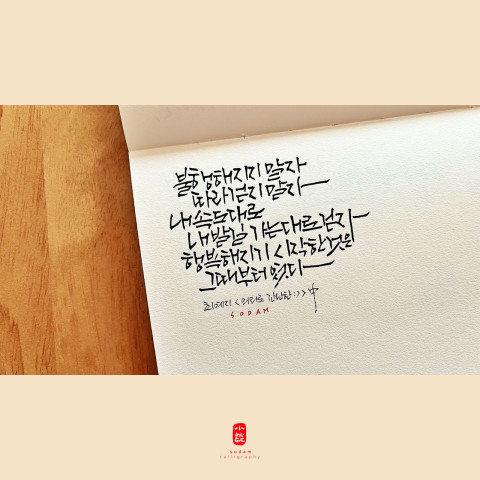 불행해지지 말자
따라 걷지 말자
내 속도대로
내 발길 가는대로 걷자
행복해지기 시작한 것은
그때부터 였다
최예지 <의외로 간단한 :) > 中
SODAM
小談
sodam
calligraphy